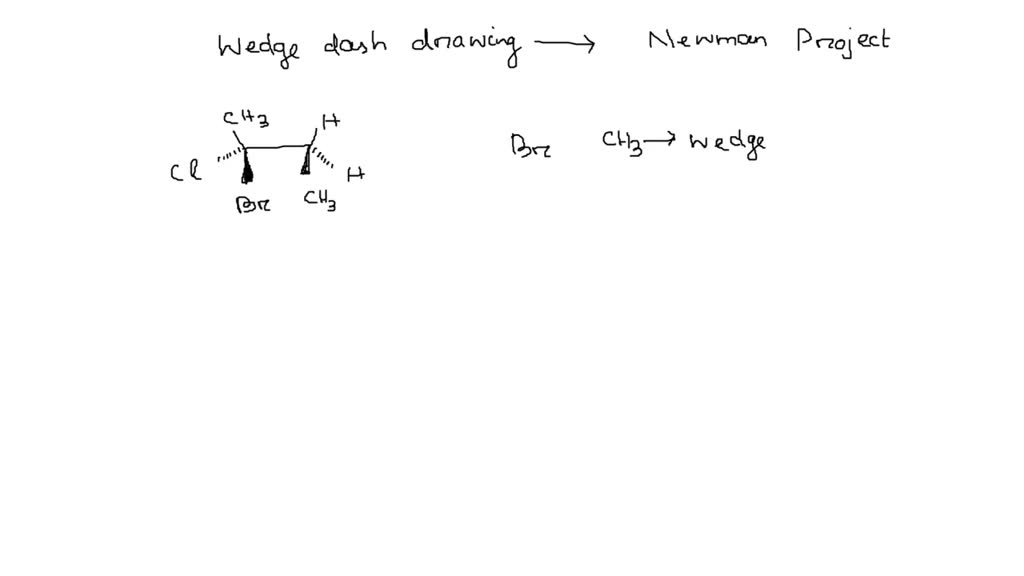 Wedge dash drawing → Newman Project
CH3 H
Cl H
Br CH3
Br CH3 → wedge